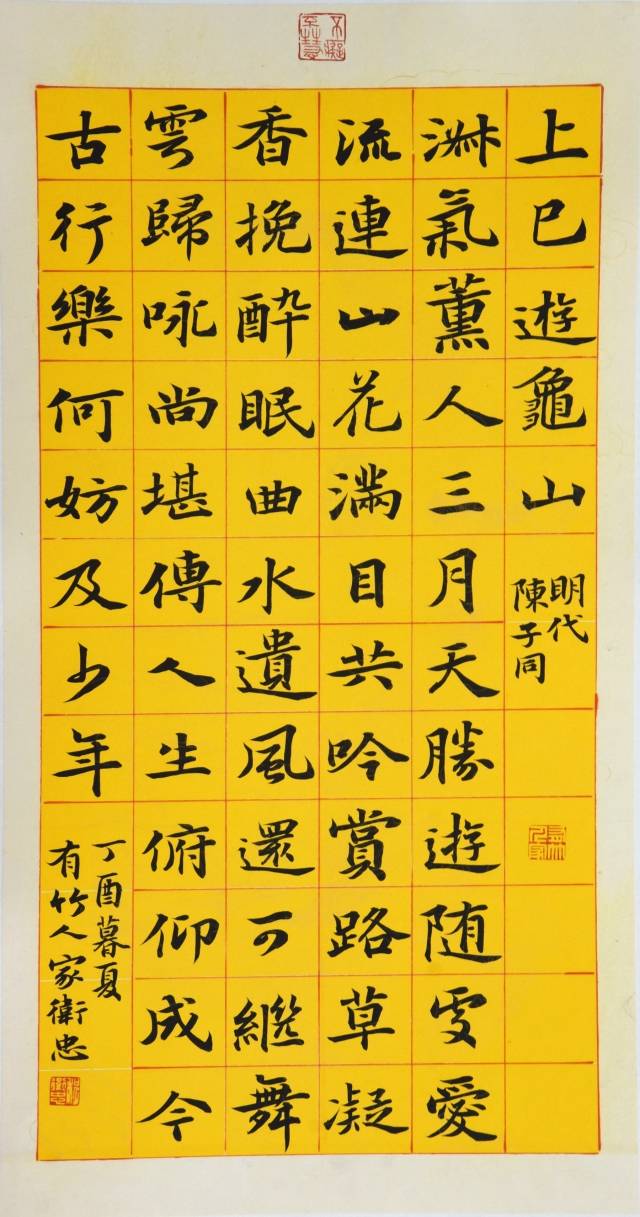 上巳遊龜山
明代
陳子同
淑氣薰人三月天勝遊随處愛
流連山花滿目共吟賞路草凝
香挽醉眠曲水遺風還可繼舞
雩歸咏尚堪傳人生俯仰成今
古行樂何妨及少年
丁酉暮夏
有竹人家衛忠